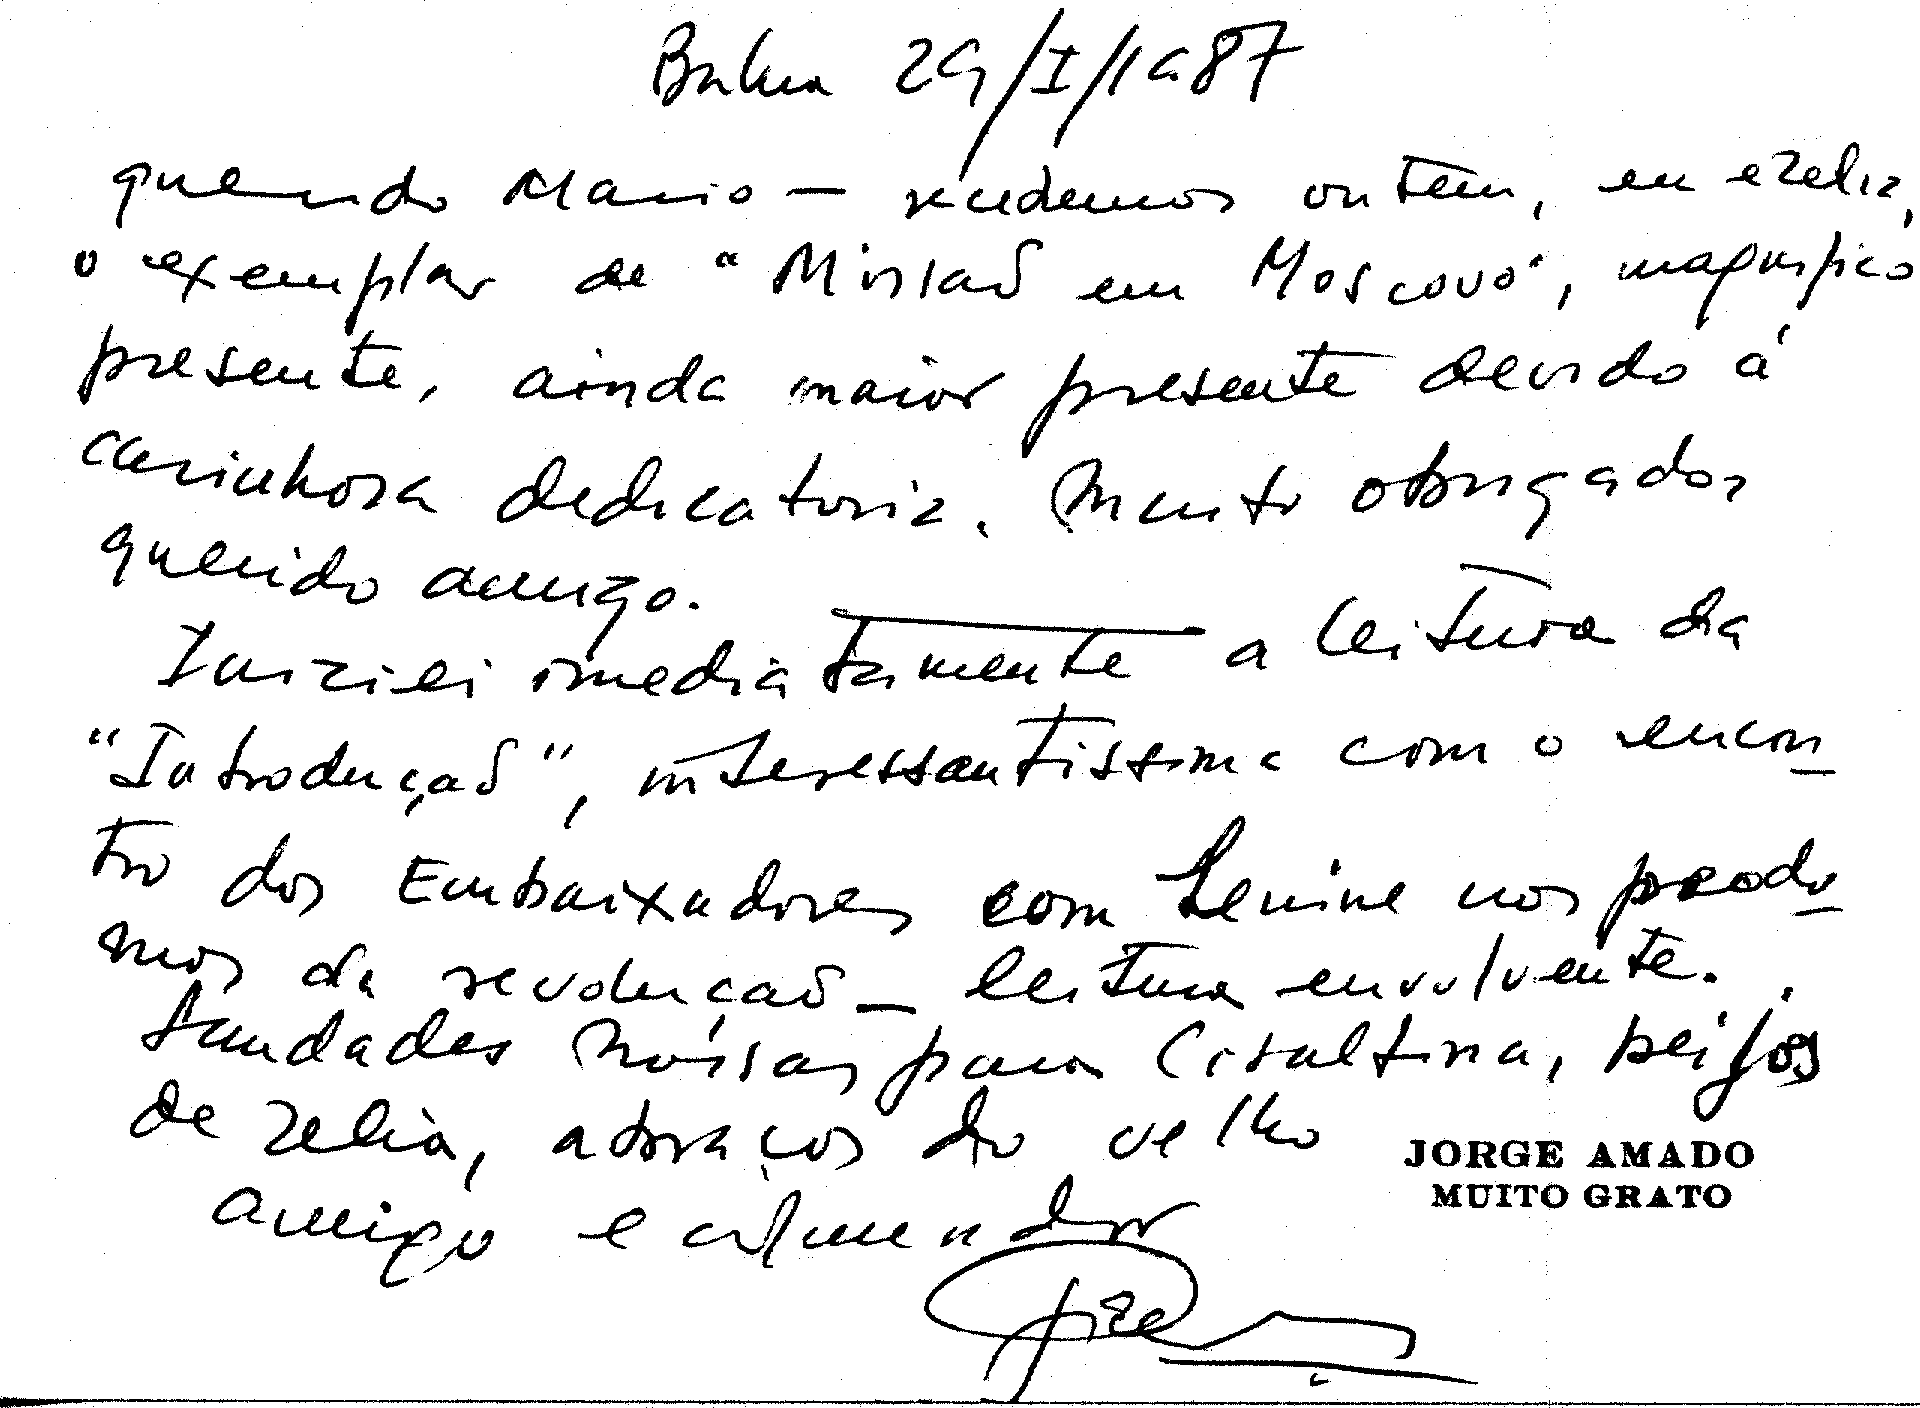 Bahia 29/I/1987
querido Mario — recebemos ontem, eu e Zelia,
o exemplar de "Missaõ em Moscovo", magnifico
presente, ainda maior presente devido á
carinhosa dedicatoria. Muito obrigados
querido amigo.
Iniciei imediatamente a leitura da
"Introduçaõ", interessantissima com o encon-
tro dos Embaixadores com Lenine nos prodo-
mos da revoluçaõ — leitura envolvente.
Saudades nóssas para Cisaltina, beijos
de Zelia, abraços do velho
JORGE AMADO
MUITO GRATO
amigo e admirador
Jorge